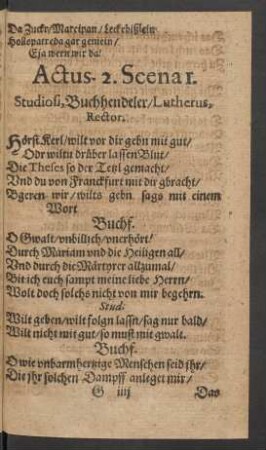 Da Zuckr/Marcipan/Leckerbißlein
Holleyatt eda gar gemein/
Eja wern wir da!
Actus. 2. Scena I.
Studiosi, Buchhendeler/Lutherus,
Rector.
Hörst Kerl/wilt vor dir gebn mit gut/
Odr wiltu drüber lassen Blut/
Die Theses so der Teyl gemacht/
Vnd du von Franckfurt mit dir gbracht/
Bgeren wir/wilts gebn sags mit einem
Wort
Buchf.
O Gwalt/vnbillich/vnerhört/
Durch Mariam vnd die Heiligen all/
Vnd durch die Märtyrer allzumal/
Bit ich euch sampt meine liebe Herrn/
Wolt doch solchs nicht von mir begehrn.
Stud.
Wilt geben/wilt folgn lassn/sag nur bald/
Wilt nicht mit gut/so must mit gwalt.
Buchf.
O wie vnbarmhertzige Menschen seid jhr/
Die jhr solchen Dampff anleget mir/
G iiij Das